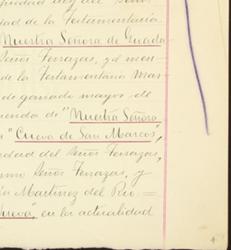 dad de la Testamentaría
Nuestra Señora de Guada
Señor Terrazas, y al nor
de la Testamentaria Mar
de ganado mayor de
enda de "Nuestra Señora
a "Cueva de San Marcos",
edad del Señor Terrazas,
Señor Terrazas, y
Martinez del Rio =
ueva", en la actualidad